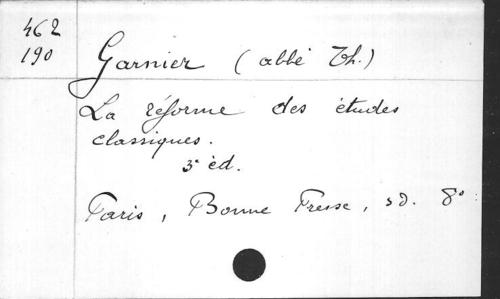 462
190
Garnier (abbé Th.)
La réforme des études
classiques.
3e éd.
Paris, Bonne Presse, s d. 8°